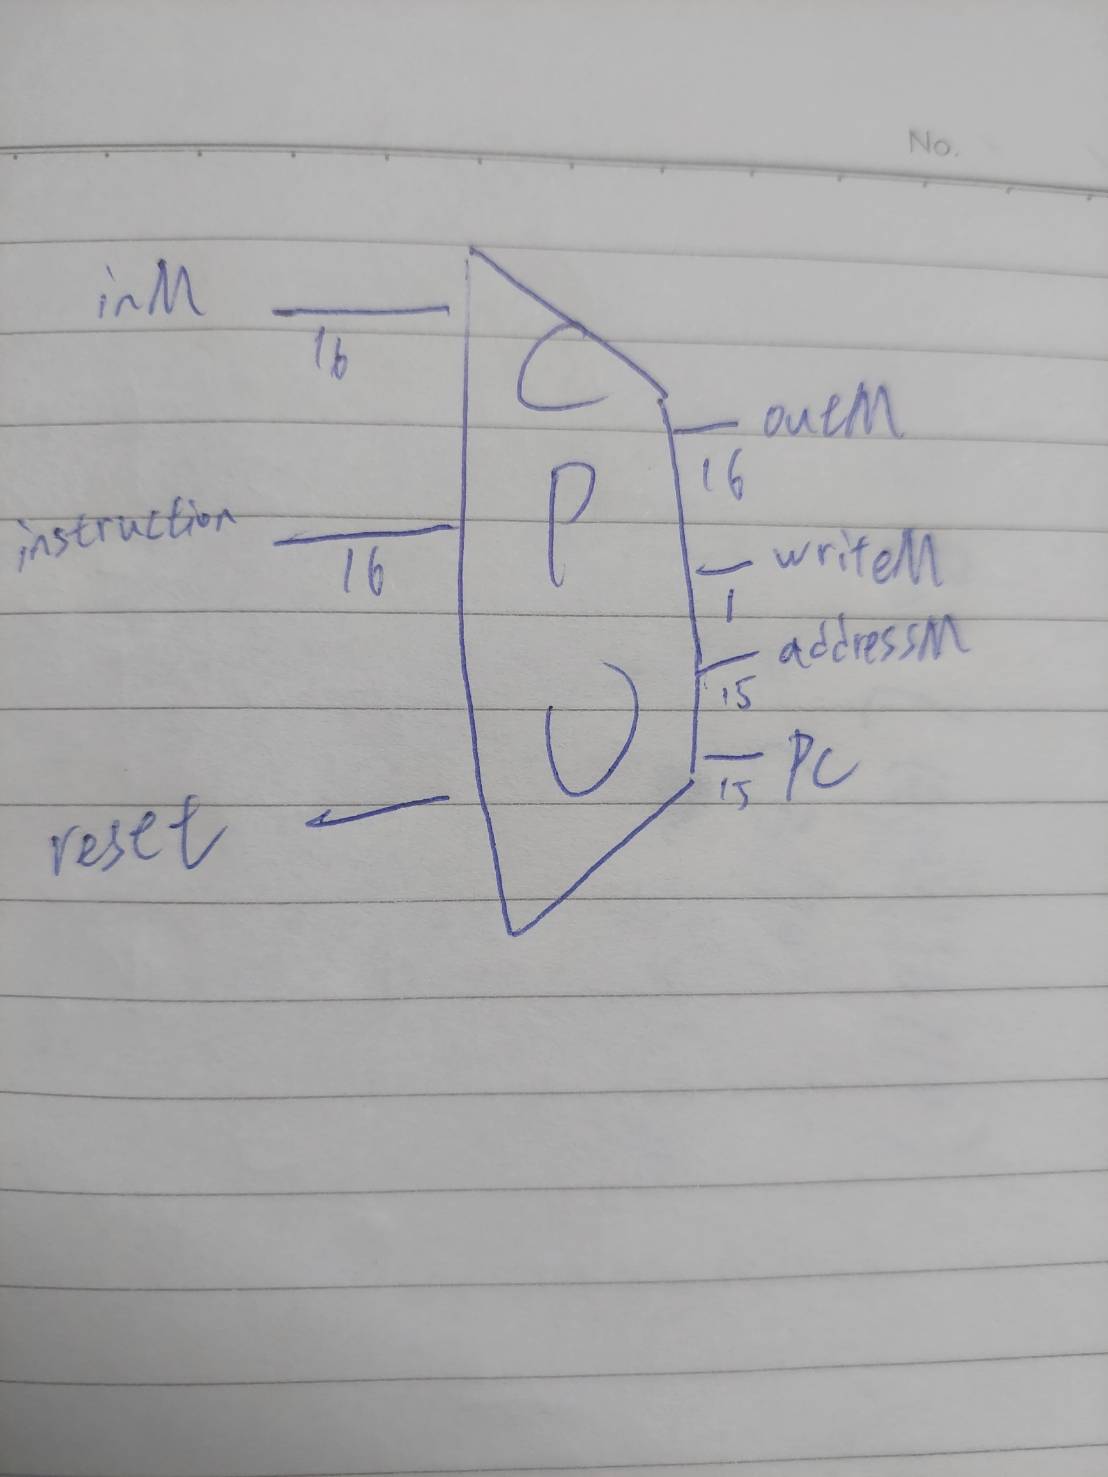 No.
inM
16
instruction
16
reset
C
P
U
outM
16
writeM
1
addressM
15
PC
15